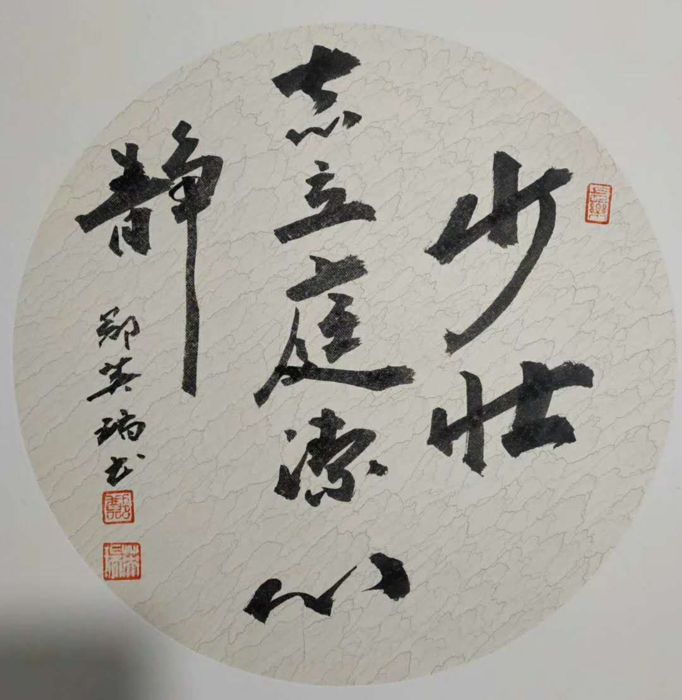 少壮
志立庭潔心
静
郑英瑞书